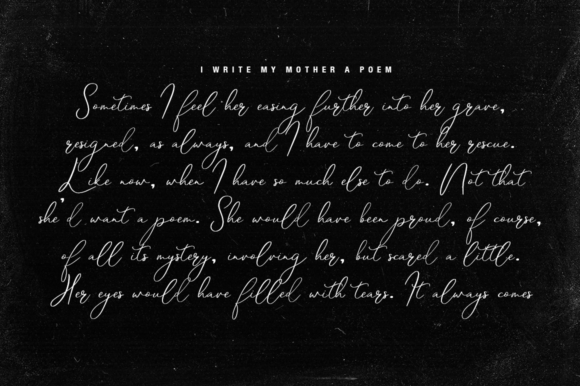 I WRITE MY MOTHER A POEM
Sometimes I feel her easing further into her grave,
resigned, as always, and I have to come to her rescue.
Like now, when I have so much else to do. Not that
she'd want a poem. She would have been proud, of course,
of all its mystery, involving her, but scared a little.
Her eyes would have filled with tears. It always comes